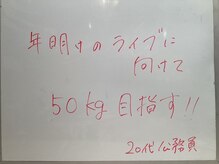 年明けのライブに
向けて
50kg目指す!!
20代公務員